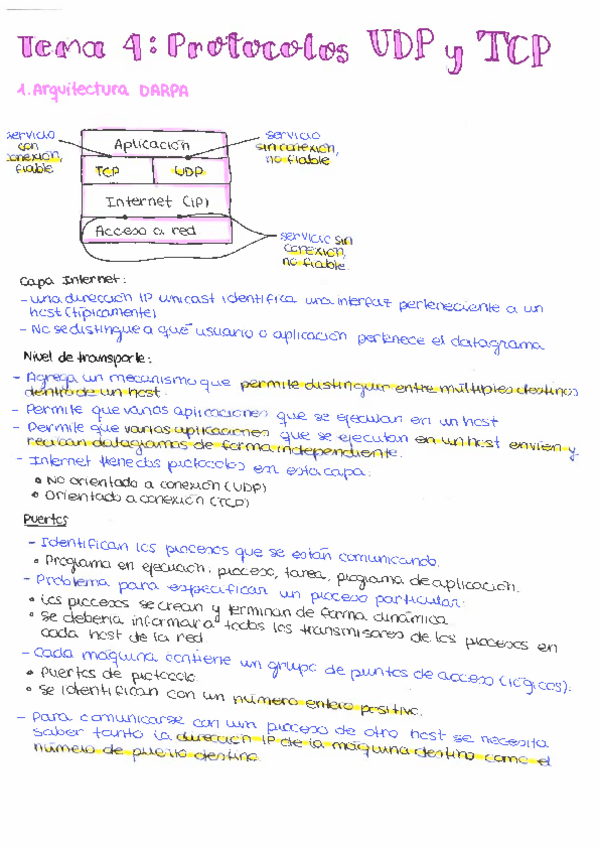 Tema 4: Protocolos UDP y TCP
1. Arquitectura DARPA
servicio
con
conexión,
fiable
Aplicación
TCP
UDP
Internet (IP)
Acceso a red
servicio
sin conexión,
no fiable
servicio sin
conexión,
no fiable
Capa Internet:
- una dirección IP unicast identifica una interfaz perteneciente a un
host (típicamente)
- No se distingue a qué usuario o aplicación pertenece el datagrama
Nivel de transporte:
- Agrega un mecanismo que permite distinguir entre múltiples destinos
dentro de un host.
- Permite que varias aplicaciones que se ejecutan en un host
- Permite que varias aplicaciones que se ejecutan en un host envíen y
reciban datagramas de forma independiente.
- Internet tiene dos protocolos en esta capa:
• No orientado a conexión (UDP)
• Orientado a conexión (TCP)
Puertos
- Identifican los procesos que se están comunicando.
• Programa en ejecución, proceso, tarea, programa de aplicación.
- Problema para especificar un proceso particular:
• Los procesos se crean y terminan de forma dinámica
• Se debería informar a todos los transmisores de los procesos en
cada host de la red
- Cada máquina contiene un grupo de puntos de acceso (lógicos).
• Puertos de protocolo
• Se identifican con un número entero positivo.
- Para comunicarse con un proceso de otro host se necesita
saber tanto la dirección IP de la máquina destino como el
número de puerto destino.